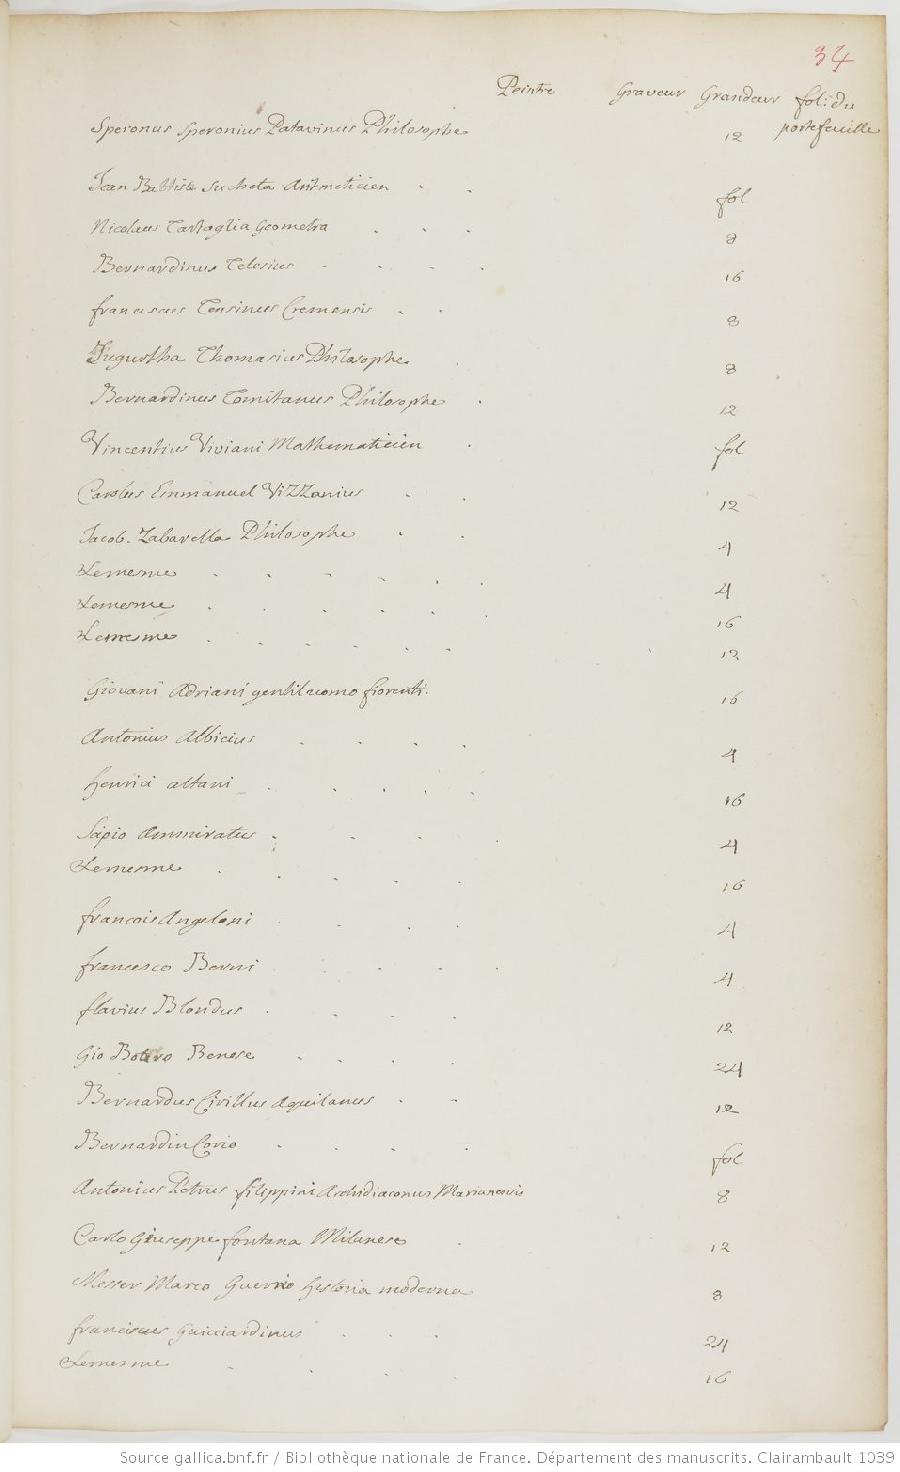 34
Peintre Graveur Grandeur fol: du portefeuille
Speronus Speronius Patavinus Philosophe 12
Jean Battiste Sucheta Aritmeticien fol
Nicolaus Tartaglia Geometra 8
Bernardinus Telesius 16
franciscus Tensinus Cremensis 8
Thomasius Philosophe 8
Bernardinus Tomitanus Philosophe 12
Vincentius Viviani Mathematicien fol
Carolus Emmanuel Vizzanius 12
Jacob. Zabarella Philosophe 4
Lemesme 4
Lemesme 16
Lemesme 12
Giovani Adriani gentiluomo fiorenti. 16
Antonius Albicius 4
henrici altani 16
Sipio Ammiratus 4
Lemesme 16
francois Angeloni 4
francesco Berni 4
flavius Blondus 12
Gio Botero Benese 24
Bernardus Cirillus Aquilanus 12
Bernardin Corio fol
Antonius Petrus filippini Archidiaconus Marianensis 8
Carlo Giuseppe fontana Milanese 12
Messer Marco Guerrio historia moderna 8
franciscus Guicciardinus 24
Lemesme 16
Source gallica.bnf.fr / Bibliothèque nationale de France. Département des manuscrits. Clairambault 1039